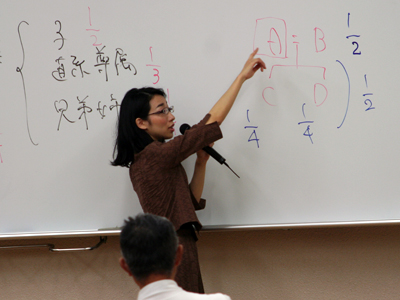 子 1/2
直系尊属 1/3
兄弟姉
A = B 1/2
C D 1/2
1/4 1/4